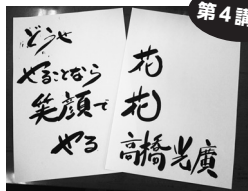 第4講
どうせ
やることなら
笑顔で
やる
花
花
高橋光廣